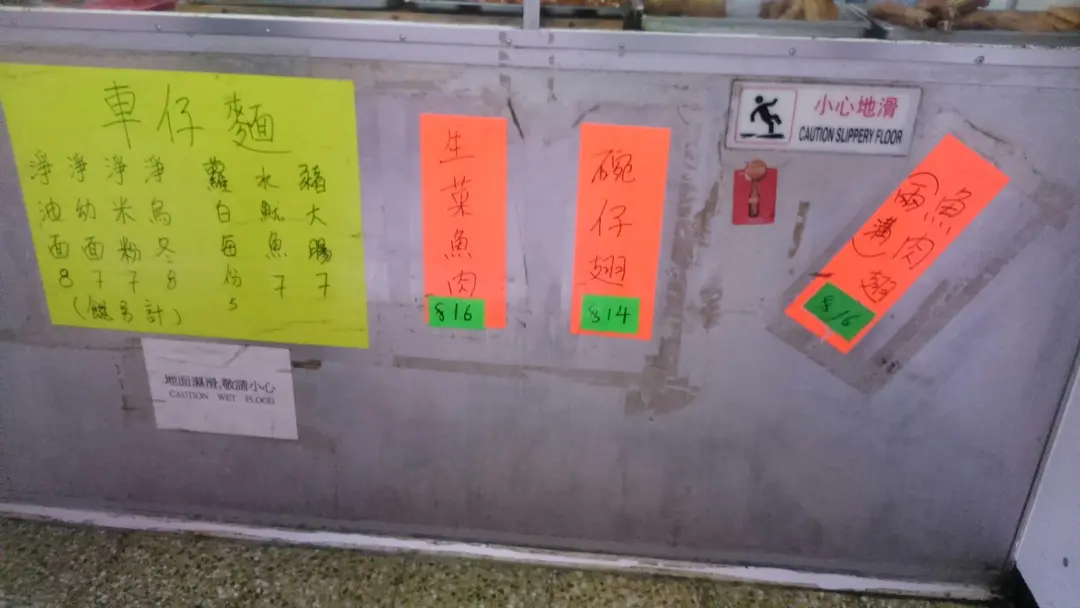 車仔麵
淨油面8
淨幼面7
淨米粉7
淨烏冬8
蘿白每份5
水魷魚7
豬大腸7
(餸另計)
地面濕滑,敬請小心
CAUTION WET FLOOD
生菜魚肉
$16
碗仔翅
$14
小心地滑
CAUTION SLIPPERY FLOOR
魚肉翅
(兩溝)
$16